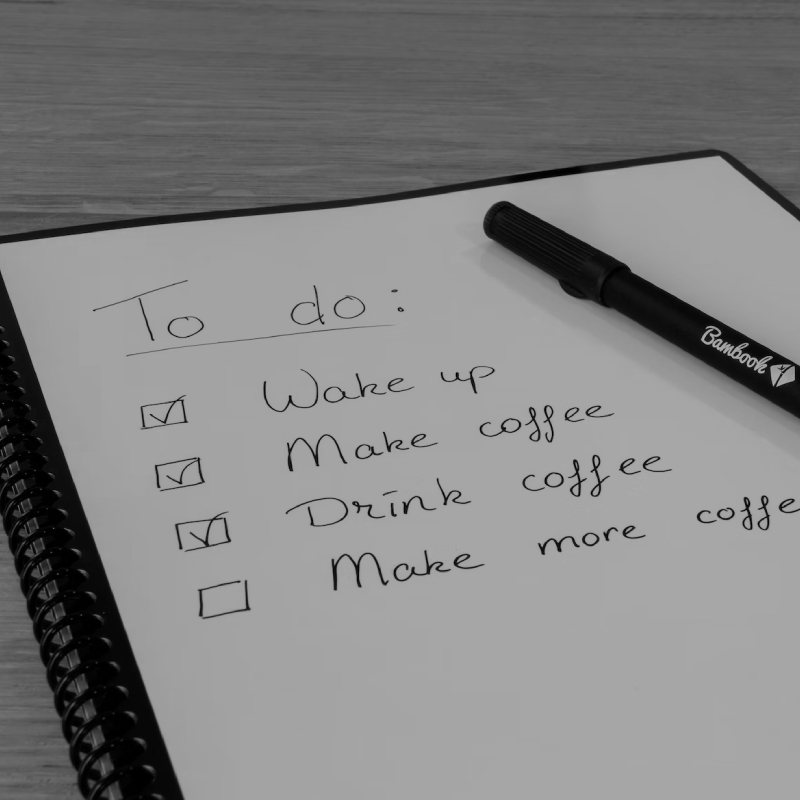 To do:
Wake up
Make coffee
Drink coffee
Make more coffe
Bambook